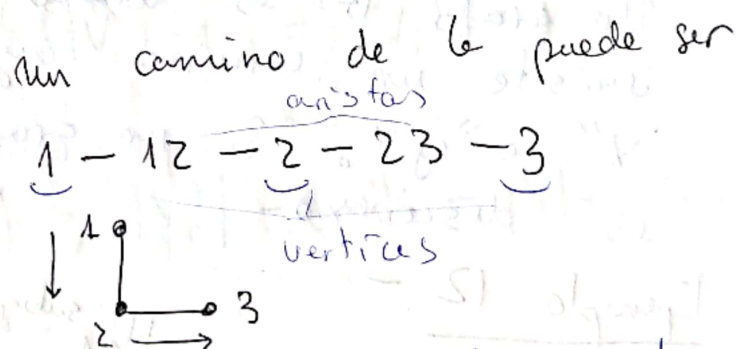 un camino de G puede ser
aristas
1 - 12 - 2 - 23 - 3
vertices
1
2
3